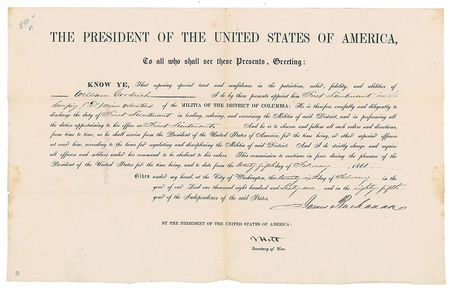 THE PRESIDENT OF THE UNITED STATES OF AMERICA,
To all who shall see these Presents, Greeting:
KNOW YE, That reposing special trust and confidence in the patriotism, valor, fidelity, and abilities of
William Goodrich I do by these presents appoint him First Lieutenant in
Company of the MILITIA OF THE DISTRICT OF COLUMBIA: He is therefore carefully and diligently to
discharge the duty of First Lieutenant in leading, ordering, and exercising the Militia of said District, and in performing all
the duties appertaining to his office as First Lieutenant And he is to observe and follow all such orders and directions,
from time to time, as he shall receive from the President of the United States of America, for the time being, or other superior officers
set over him, according to the laws for regulating and disciplining the Militia of said District. And I do strictly charge and require
all officers and soldiers under his command to be obedient to his orders. This commission to continue in force during the pleasure of the
President of the United States for the time being, and to date from the twenty fifth day of February 1861.
Given under my hand, at the City of Washington, this twenty sixth day of February in the
year of our Lord one thousand eight hundred and sixty one and in the eighty fifth
year of the Independence of the said States.
James Buchanan
BY THE PRESIDENT OF THE UNITED STATES OF AMERICA:
J Holt
Secretary of War.